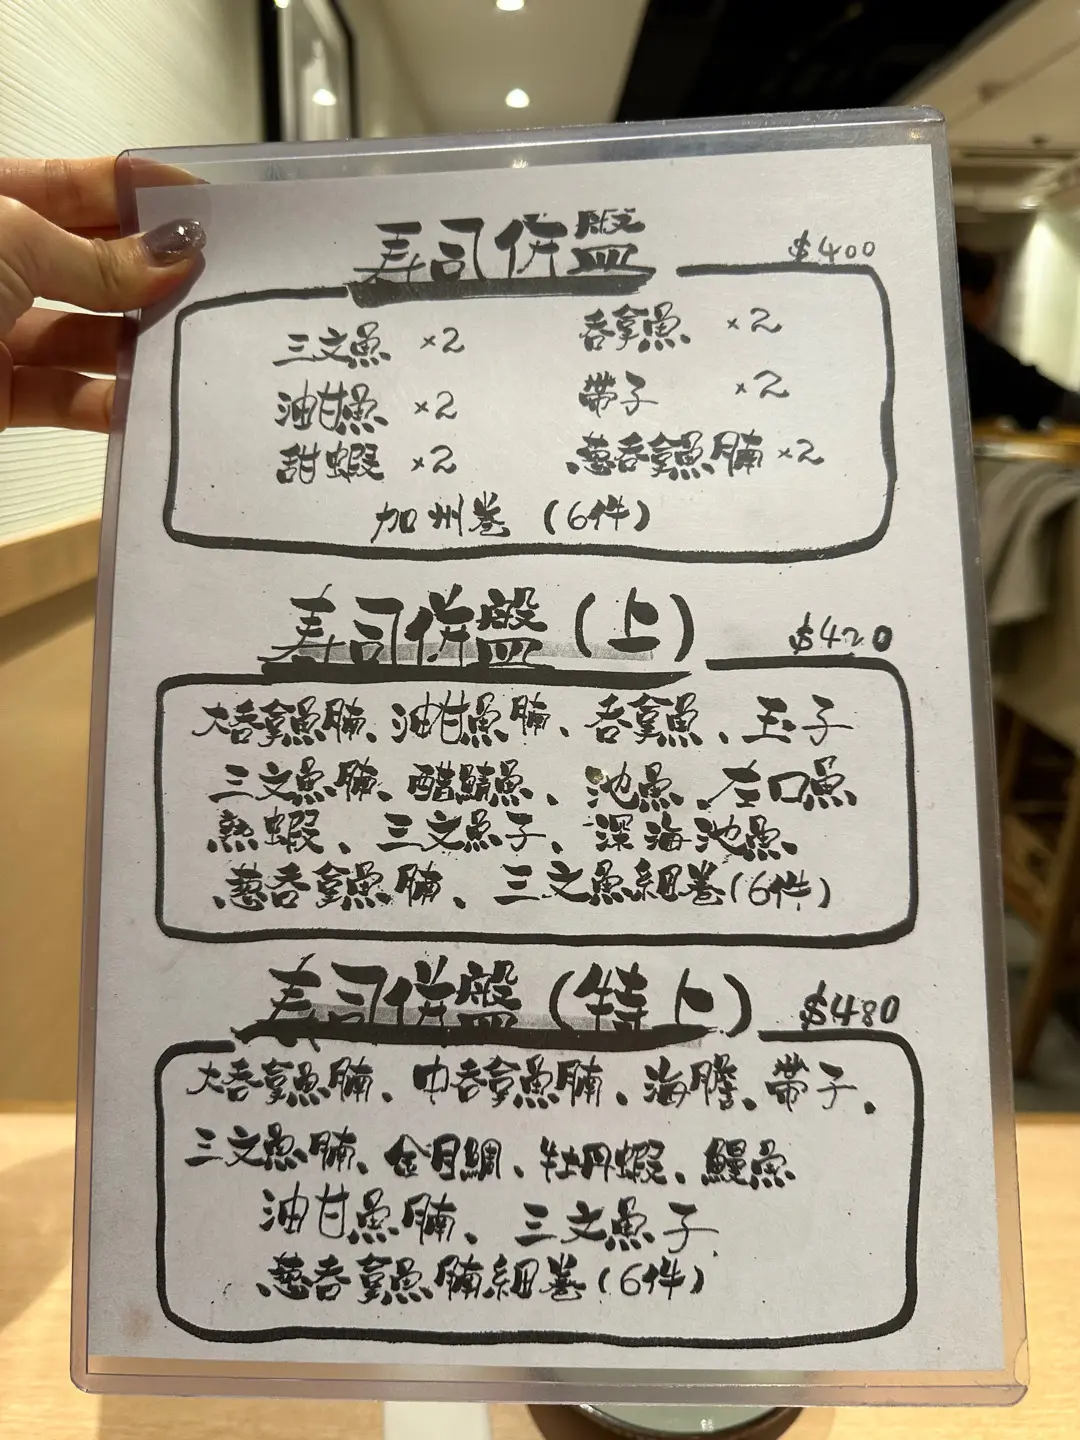 寿司併盤 $400
三文魚 ×2 吞拿魚 ×2
油甘魚 ×2 帶子 ×2
甜蝦 ×2 葱吞拿魚腩 ×2
加州卷 (6件)
寿司併盤(上) $420
大吞拿魚腩、油甘魚腩、吞拿魚、玉子
三文魚腩、醋鯖魚、池魚、左口魚
熟蝦、三文魚子、深海池魚
葱吞拿魚腩、三文魚細卷(6件)
寿司併盤(特上) $480
大吞拿魚腩、中吞拿魚腩、海膽、帶子、
三文魚腩、金目鯛、牡丹蝦、鰻魚
油甘魚腩、三文魚子
葱吞拿魚腩細卷(6件)